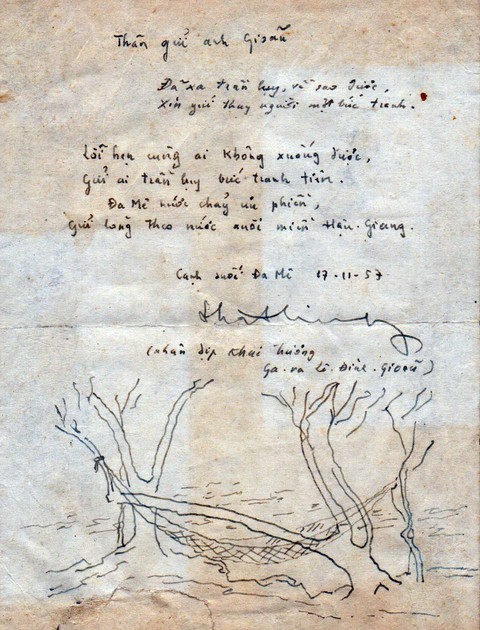 Thân gửi anh Gioãn
Đã xa trần lụy, vẽ sao được,
Xin gửi thay người một bức tranh.
Lỗi hẹn cùng ai không xuống được,
Gửi ai trần lụy bức tranh tiên.
Đa Mê nước chảy ưu phiền,
Gửi lòng theo nước xuôi miền Hậu-Giang.
Cạnh suối Đa Mê 17-11-57
Nhất Linh
(nhân dịp khai trương
Ga-ra Lê-Đình-Gioãn)